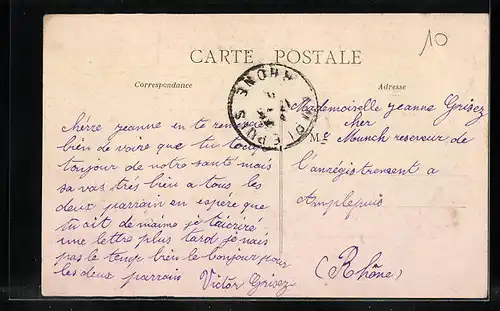 CARTE POSTALE
10
Correspondance
Adresse
RHONE
AMPLEPUIS
chérre jeanne en te
bien de voire que tu
toujour de notre santé mais
sa vas trés bien a tous les
deux parrain en espére que
tu ait de maime je t'aicriré
une lettre plus tard je nais
pas le temp bien le bonjour pour
les deux parrain
Victor Grisez
Mademoiselle jeanne Grisez
cher
Mr Munch reserveur de
l'anrégistrement a
Amplepuis
(Rhône)